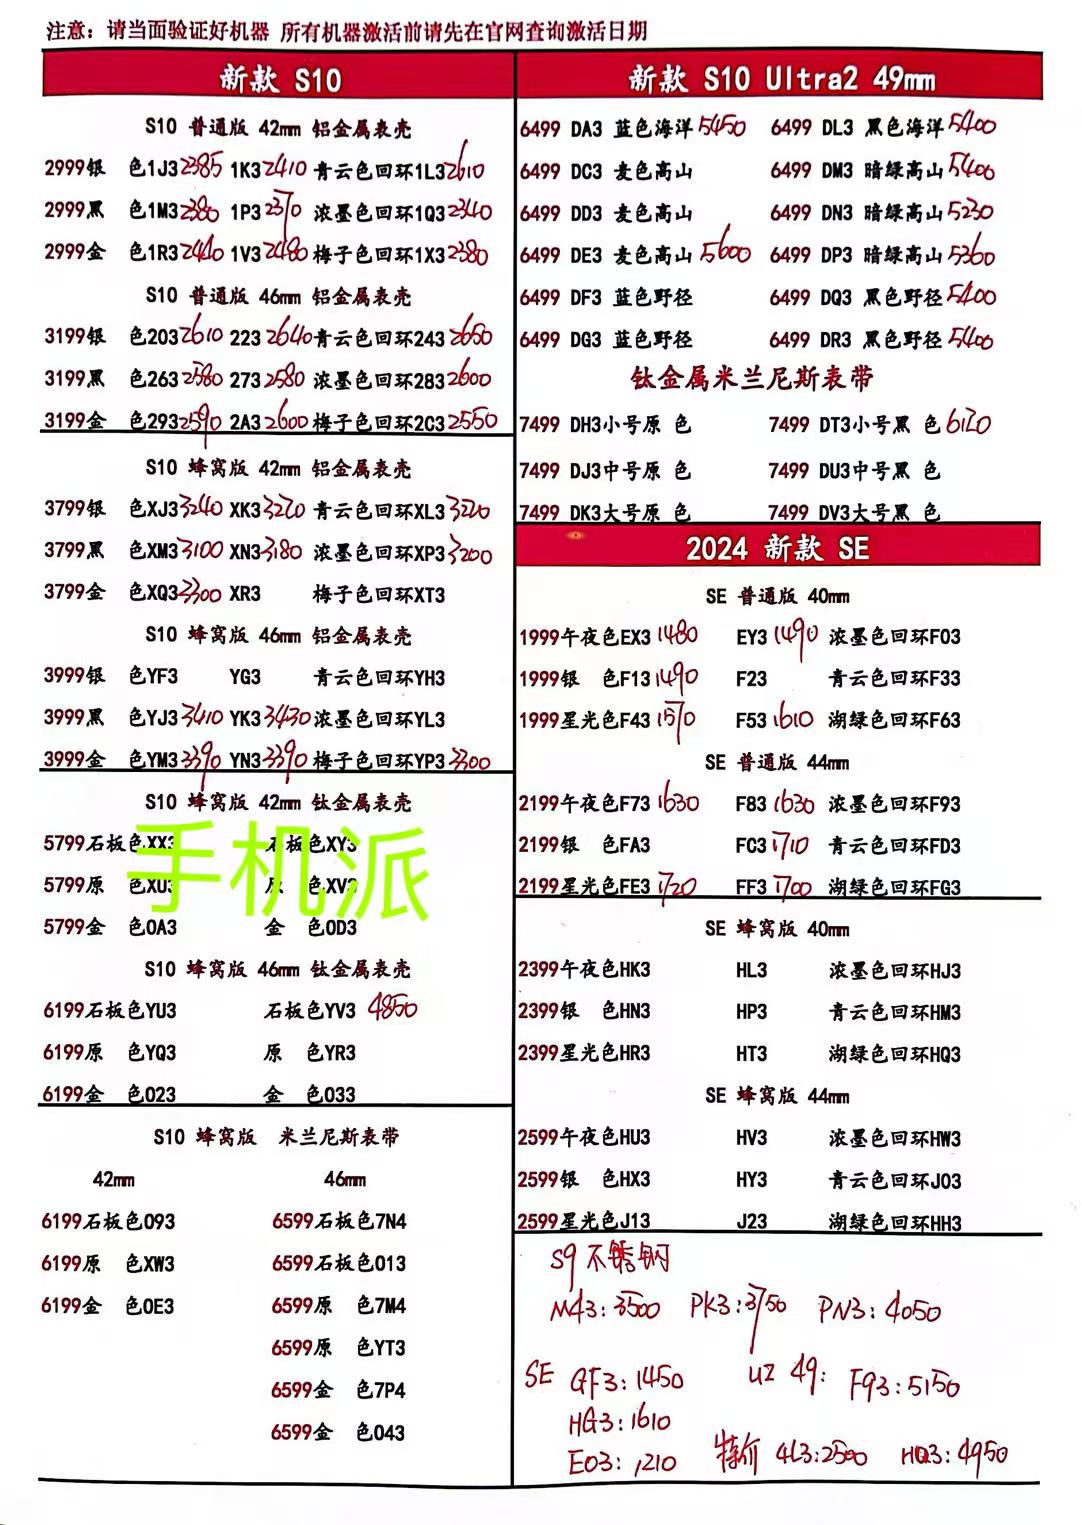 注意：请当面验证好机器 所有机器激活前请先在官网查询激活日期
新款 S10
S10 普通版 42mm 铝金属表壳
2999银 色1J3 2385 1K3 2410 青云色回环1L3 2610
2999黑 色1M3 2380 1P3 2370 浓墨色回环1Q3 2340
2999金 色1R3 2440 1V3 2480 梅子色回环1X3 2380
S10 普通版 46mm 铝金属表壳
3199银 色203 2610 223 2640 青云色回环243 2650
3199黑 色263 2580 273 2580 浓墨色回环283 2600
3199金 色293 2590 2A3 2600 梅子色回环2C3 2550
S10 蜂窝版 42mm 铝金属表壳
3799银 色XJ3 3240 XK3 3220 青云色回环XL3 3220
3799黑 色XM3 3100 XN3 3180 浓墨色回环XP3 3200
3799金 色XQ3 3300 XR3 梅子色回环XT3
S10 蜂窝版 46mm 铝金属表壳
3999银 色YF3 YG3 青云色回环YH3
3999黑 色YJ3 3410 YK3 3430 浓墨色回环YL3
3999金 色YM3 3390 YN3 3390 梅子色回环YP3 3300
S10 蜂窝版 42mm 钛金属表壳
5799石板色XX3 石板色XY3
5799原 色XU3 原 色XV3
手机派
5799金 色0A3 金 色0D3
S10 蜂窝版 46mm 钛金属表壳
6199石板色YU3 石板色YV3 4850
6199原 色YQ3 原 色YR3
6199金 色023 金 色033
S10 蜂窝版 米兰尼斯表带
42mm 46mm
6199石板色093 6599石板色7N4
6199原 色XW3 6599石板色013
6199金 色0E3 6599原 色7M4
6599原 色YT3
6599金 色7P4
6599金 色043
新款 S10 Ultra2 49mm
6499 DA3 蓝色海洋 5450 6499 DL3 黑色海洋 5400
6499 DC3 麦色高山 6499 DM3 暗绿高山 5400
6499 DD3 麦色高山 6499 DN3 暗绿高山 5230
6499 DE3 麦色高山 5600 6499 DP3 暗绿高山 5360
6499 DF3 蓝色野径 6499 DQ3 黑色野径 5400
6499 DG3 蓝色野径 6499 DR3 黑色野径 5400
钛金属米兰尼斯表带
7499 DH3小号原 色 7499 DT3小号黑 色 6120
7499 DJ3中号原 色 7499 DU3中号黑 色
7499 DK3大号原 色 7499 DV3大号黑 色
2024 新款 SE
SE 普通版 40mm
1999午夜色EX3 1480 EY3 1490 浓墨色回环F03
1999银 色F13 1490 F23 青云色回环F33
1999星光色F43 1570 F53 1610 湖绿色回环F63
SE 普通版 44mm
2199午夜色F73 1630 F83 1630 浓墨色回环F93
2199银 色FA3 FC3 1710 青云色回环FD3
2199星光色FE3 1720 FF3 1700 湖绿色回环FG3
SE 蜂窝版 40mm
2399午夜色HK3 HL3 浓墨色回环HJ3
2399银 色HN3 HP3 青云色回环HM3
2399星光色HR3 HT3 湖绿色回环HQ3
SE 蜂窝版 44mm
2599午夜色HU3 HV3 浓墨色回环HW3
2599银 色HX3 HY3 青云色回环J03
2599星光色J13 J23 湖绿色回环HH3
S9 不锈钢
M43: 3500 PK3: 3750 PN3: 4050
SE GF3: 1450 U2 49: F93: 5150
HG3: 1610
E03: 1210 特价 4L3: 2500 HQ3: 4950